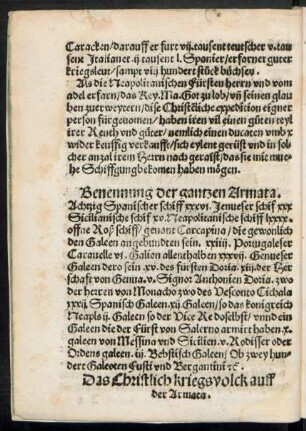 Caracken / darauff er furt vij. tausent teutscher v. tau
sent Italianer ij tausent l. Spanier / erforner guter
kriegsleut / sampt viij hundert stuck büchsen.
Als die Neapolitanischen Fürsten herrn vnd vom
adel erfarn / das Key. Ma. Got zu lob / vn seinen glau
ben zuerweytern / dise Christliche expedition eigner
person fürgenomen / haben iren vil einen güten teyl
irer Renth vnd güter / nemlich einen ducaten vmb x
wider keufflig verkaufft / sich eylent gerüst vnd in sol
cher anzal irem Herrn nach geraist / das sie mit mue
he Schiffung bekomen haben mögen.
Benennung der gantzen Armata.
Achtzig Spanischer schiff xxxvi. Jenueser schif xxx
Sicilianische schif xv. Neapolitanische schif lxxxx.
offne Roß schiff / genant Carcapina / die gewonlich
den Galeen angebundten sein. xxiiij. Portugaleser
Carauelle vi. Galion allenthalben xxxvij. Genueser
Galeen dero sein xv. des fürsten Doria. xiij. der Her
schafft von Genua. v. Signor Anthonien Doria. zwo
der herren von Monacho zwo des Vesconto Cichala
xxxij Spanisch Galeen. xij Galeen / so das konigreich
Neapls ij. Galeen so der Vice Re doselbst / vnnd ein
Galeen die der Fürst von Salerno armirt haben x.
galeen von Messina vnd Sicilien. v. Rodiser oder
Ordens galeen. iij. Bebstisch Galeen / Ob zwey hun
dert Galeoten Fusti vnd Bergantini rc.
Das Christlich kriegsvolck auff
der Armata.